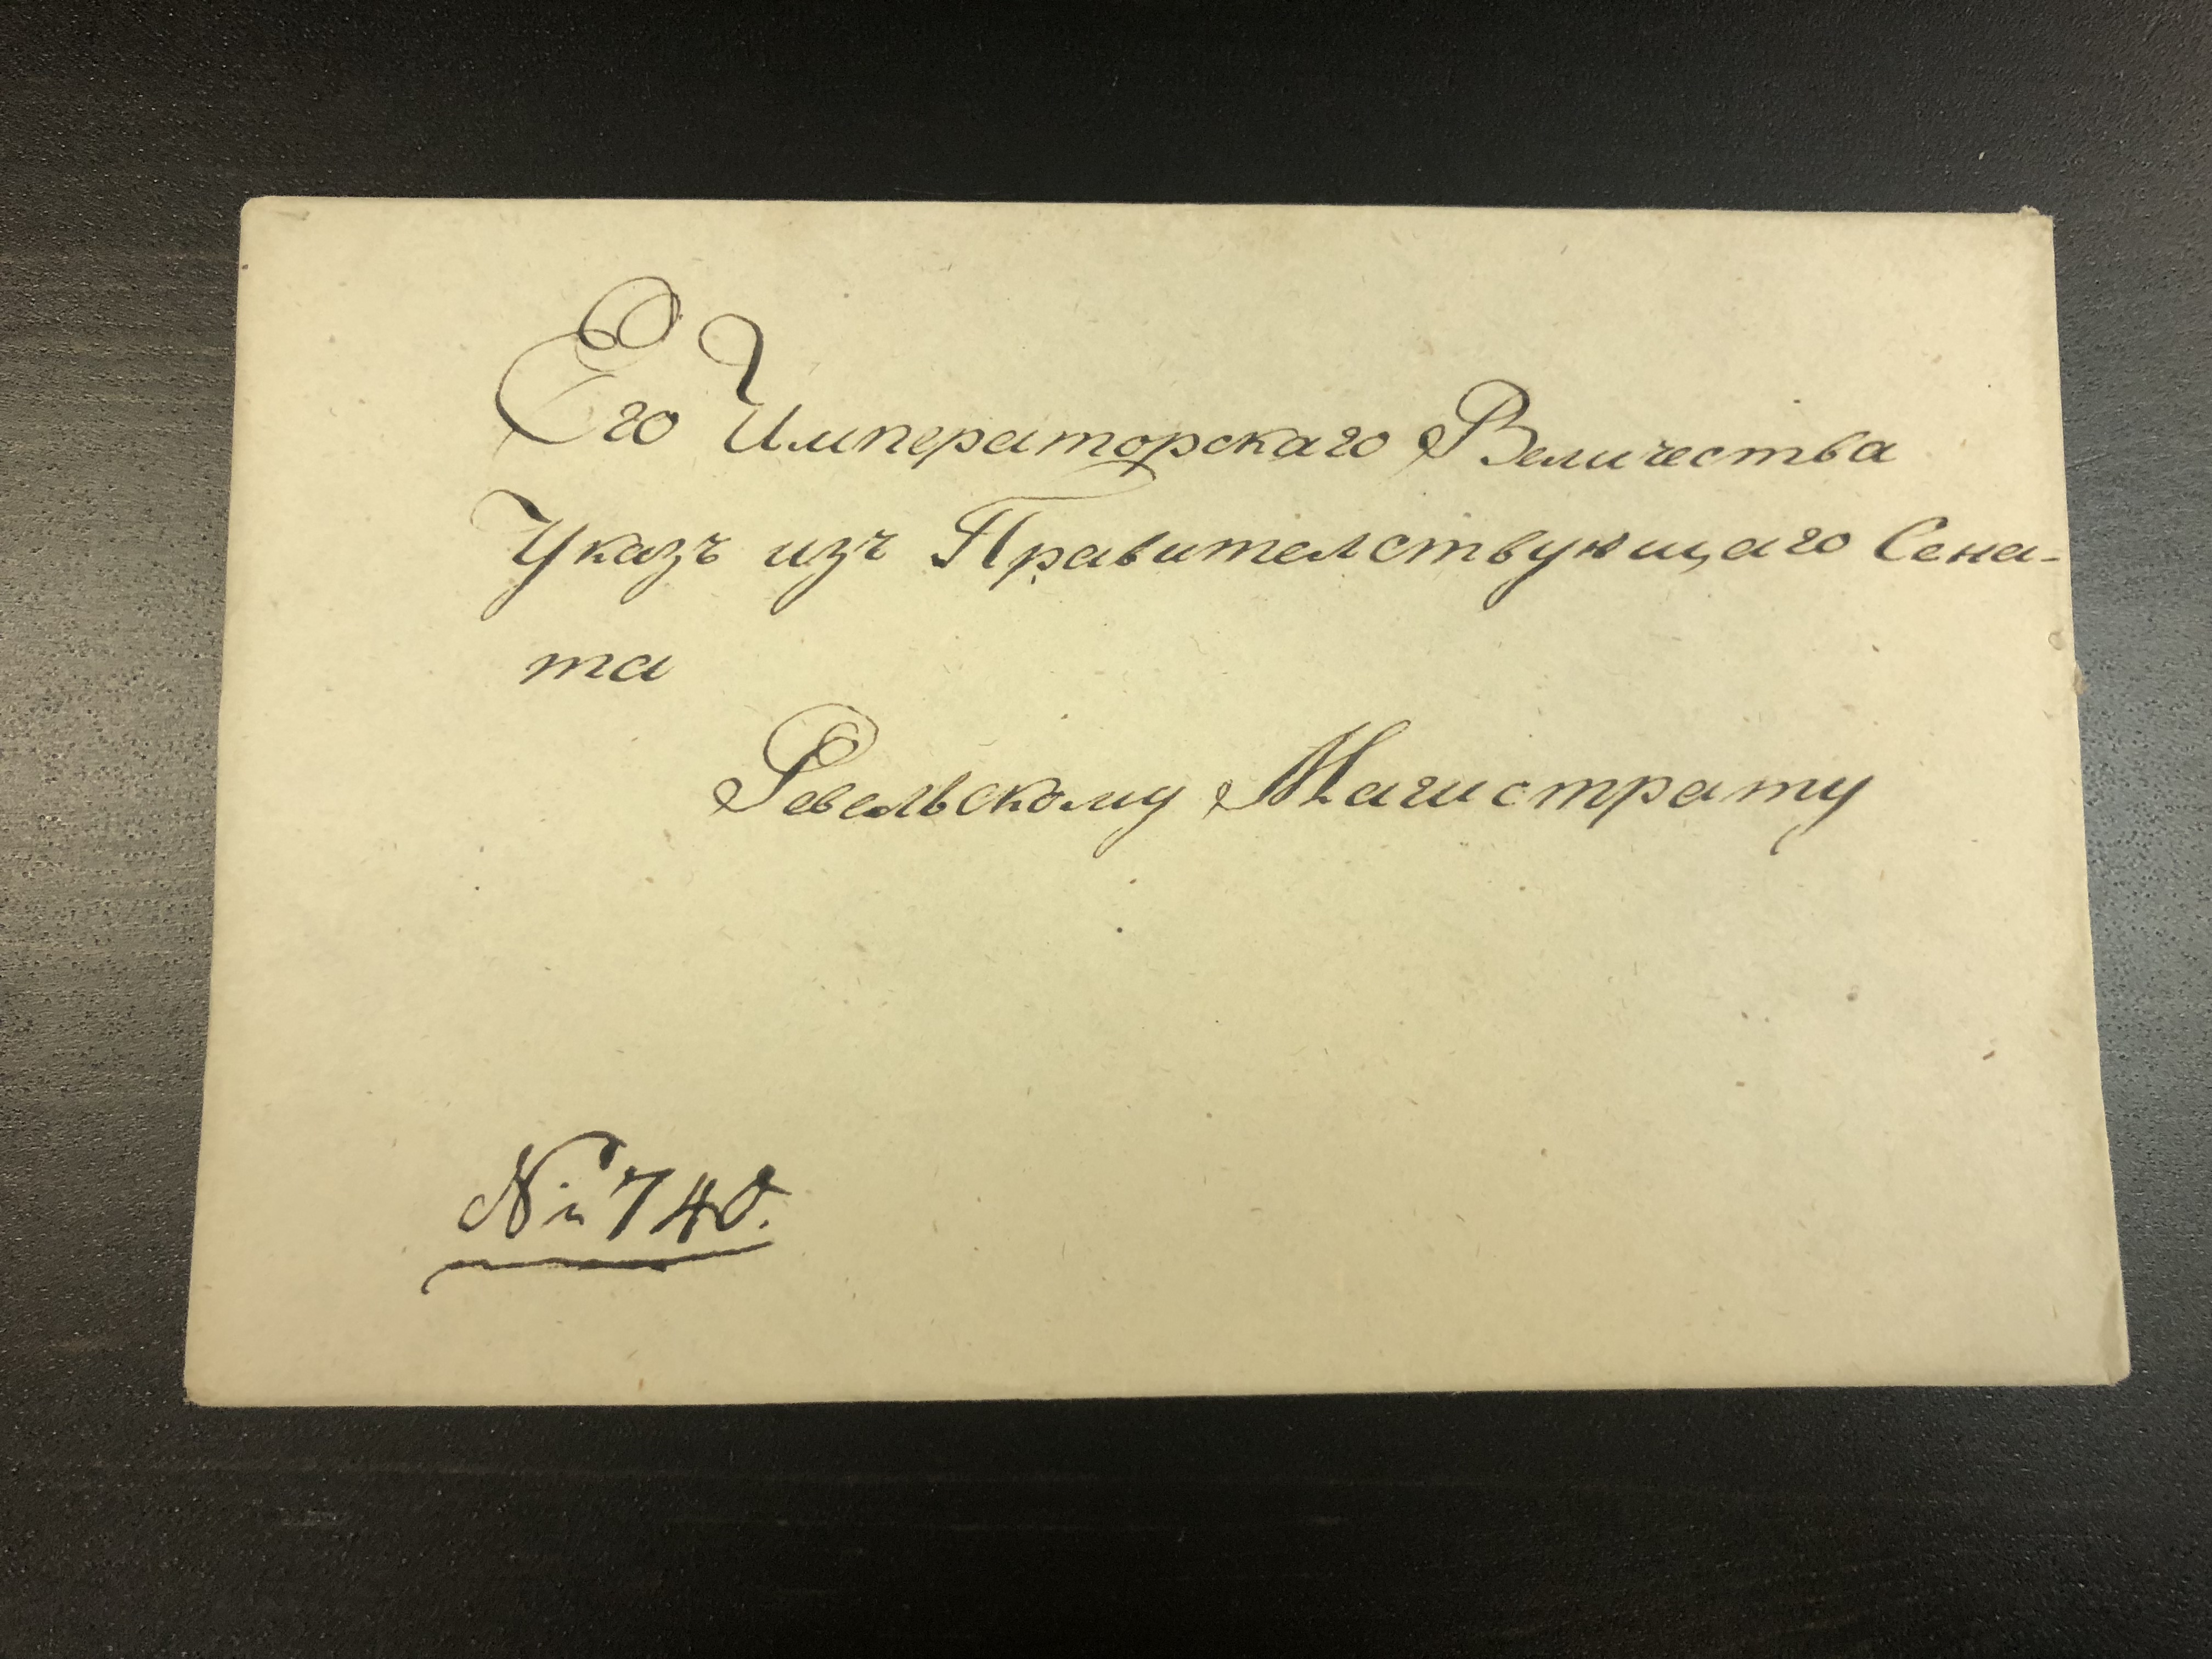 Его Императорскаго Величества
Указъ изъ Правителствующаго Сена-
та
Ревельскому Магистрату
№ 740.